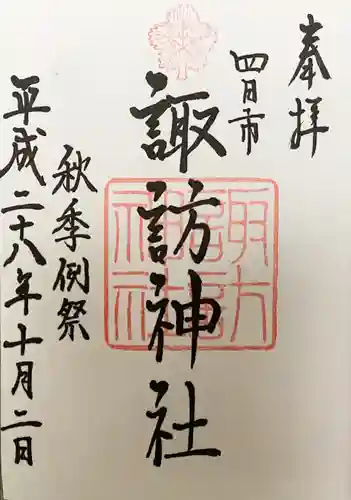 奉拝
四日市
諏訪神社
秋季例祭
平成二十八年十月二日
諏訪神社